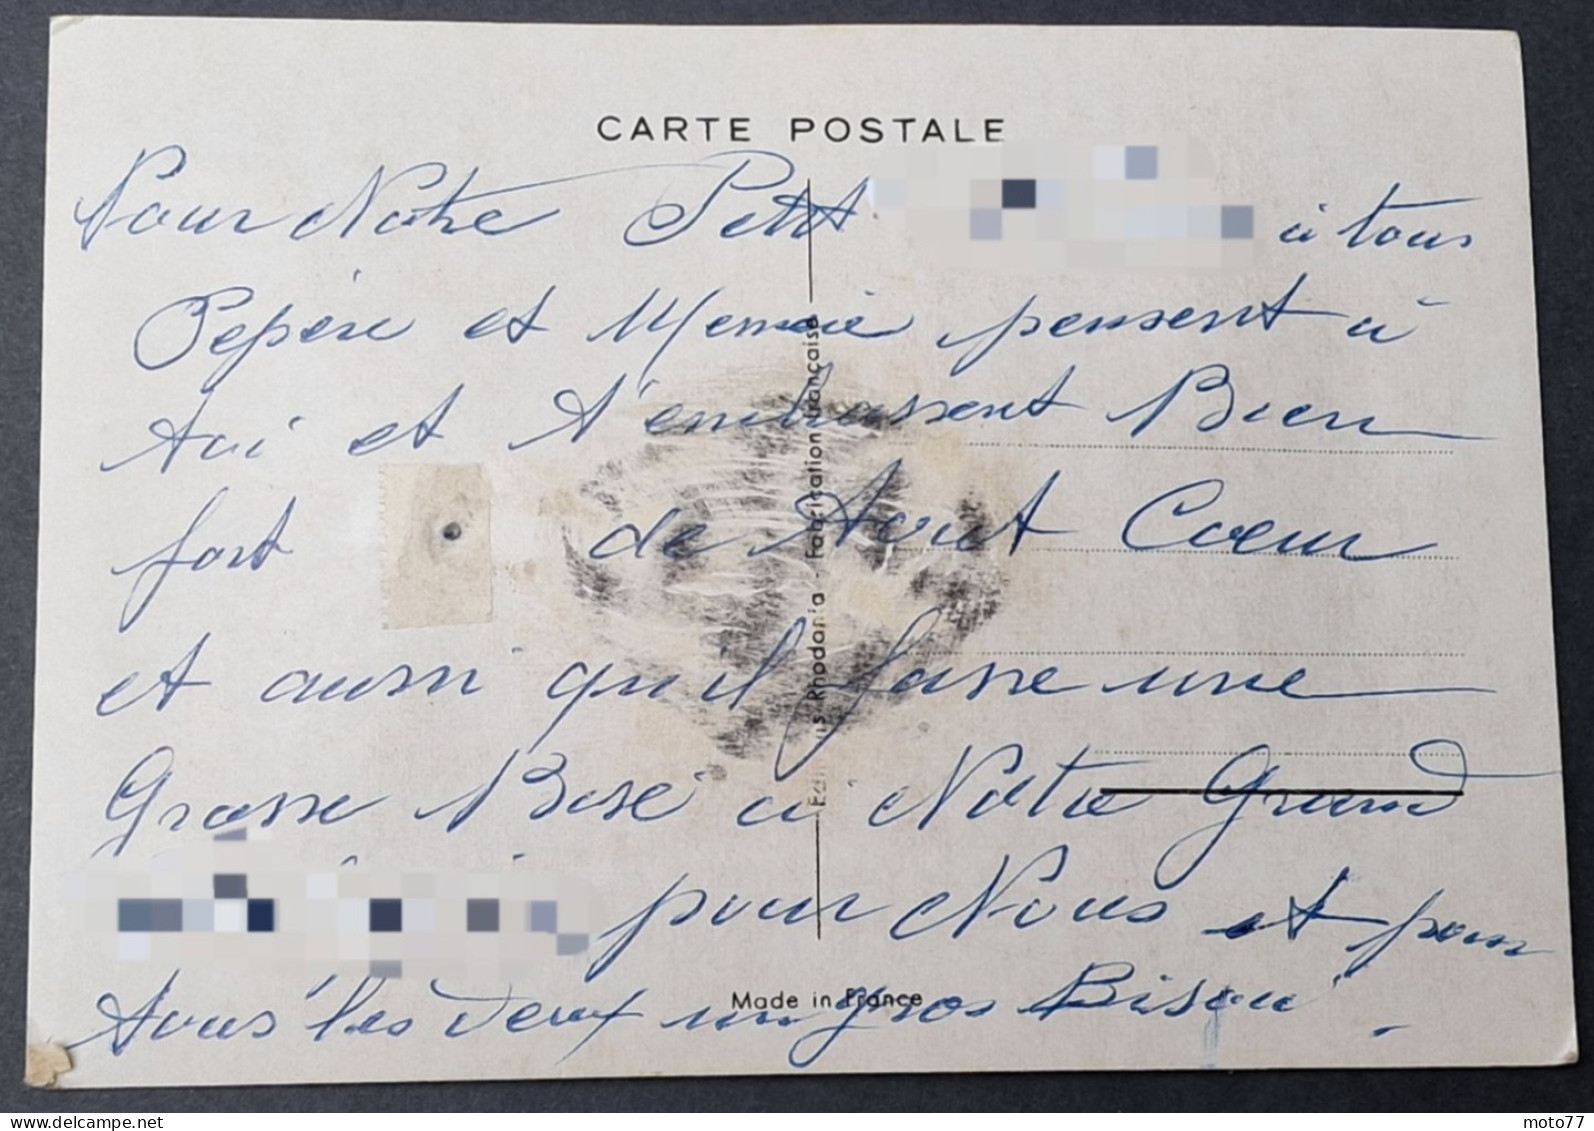 CARTE POSTALE
Pour Notre Petit
à tous
Pepère et Memée pensent à
toi et t'embrassent Bien
fort de tout Coeur
et aussi qu'il fasse une
Grosse Bise à Notre Grand
pour Nous et pour
tous les deux un gros Bisou.
Rhodania - Fabrication Française
Made in France
www.delcampe.net
moto77